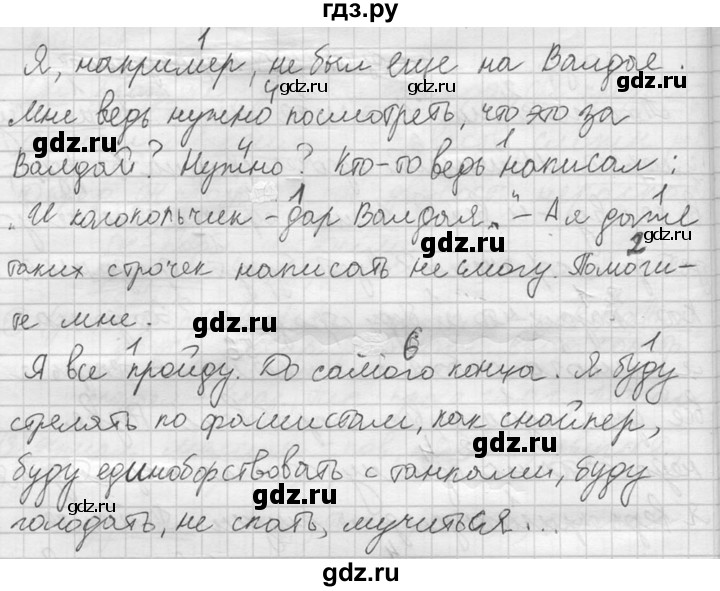 гдз.ру
1
Я, например, не был еще на Валдае.
4
gdz.ru
Мне ведь нужно посмотреть, что это за
gdz.ru gdz.ru
4 1
Валдай? Нужно? Кто-то ведь написал:
1 1
„И колокольчик – дар Валдая„" – А я даже
gdz.ru gdz.ru
2
таких строчек написать не смогу. Помоги-
те мне.
gdz.ru
1 6 1
Я все пройду. До самого конца. Я буду
gdz.ru
стрелять по фашистам, как снайпер,
gdz.ru
буду единоборствовать с танками, буду
gdz.ru gdz.ru gdz.ru
голодать, не спать, мучиться...
gdz.ru